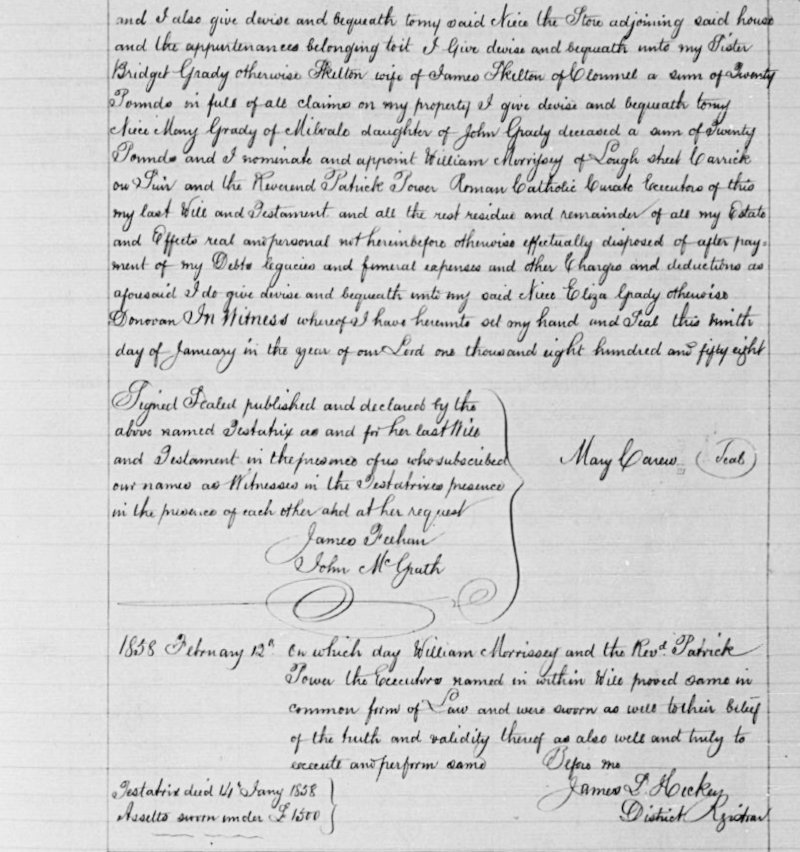 and I also give devise and bequeath to my said Niece the Store adjoining said house
and the appurtenances belonging to it I Give devise and bequeath unto my Sister
Bridget Grady otherwise Skelton wife of James Skelton of Clonmel a sum of Twenty
Pounds in full of all claims on my property I give devise and bequeath to my
Niece Mary Grady of Milvale daughter of John Grady deceased a sum of Twenty
Pounds and I nominate and appoint William Morrissey of Lough Street Carrick
on Suir and the Reverend Patrick Power Roman Catholic Curate Executors of this
my last Will and Testament and all the rest residue and remainder of all my Estate
and Effects real and personal not hereinbefore otherwise effectually disposed of after pay=
ment of my Debts legacies and funeral expenses and other Charges and deductions as
aforesaid I do give devise and bequeath unto my said Niece Eliza Grady otherwise
Donovan In Witness whereof I have hereunto set my hand and Seal this ninth
day of January in the year of our Lord one thousand eight hundred and fifty eight
Signed Sealed published and declared by the
above named Testatrix as and for her last Will
and Testament in the presence of us who subscribed
our names as Witnesses in the Testatrixes presence
in the presence of each other and at her request
James Feehan
John McGrath
Mary Carew (Seal)
1858 February 12th On which day William Morrissey and the Revd. Patrick
Power the Executors named in within Will proved same in
common form of Law and were sworn as well to their belief
of the truth and validity thereof as also well and truly to
execute and perform same Before me
James P. Hickey
District Registrar
Testatrix died 14th Jany 1858
Assetts sworn under £1500